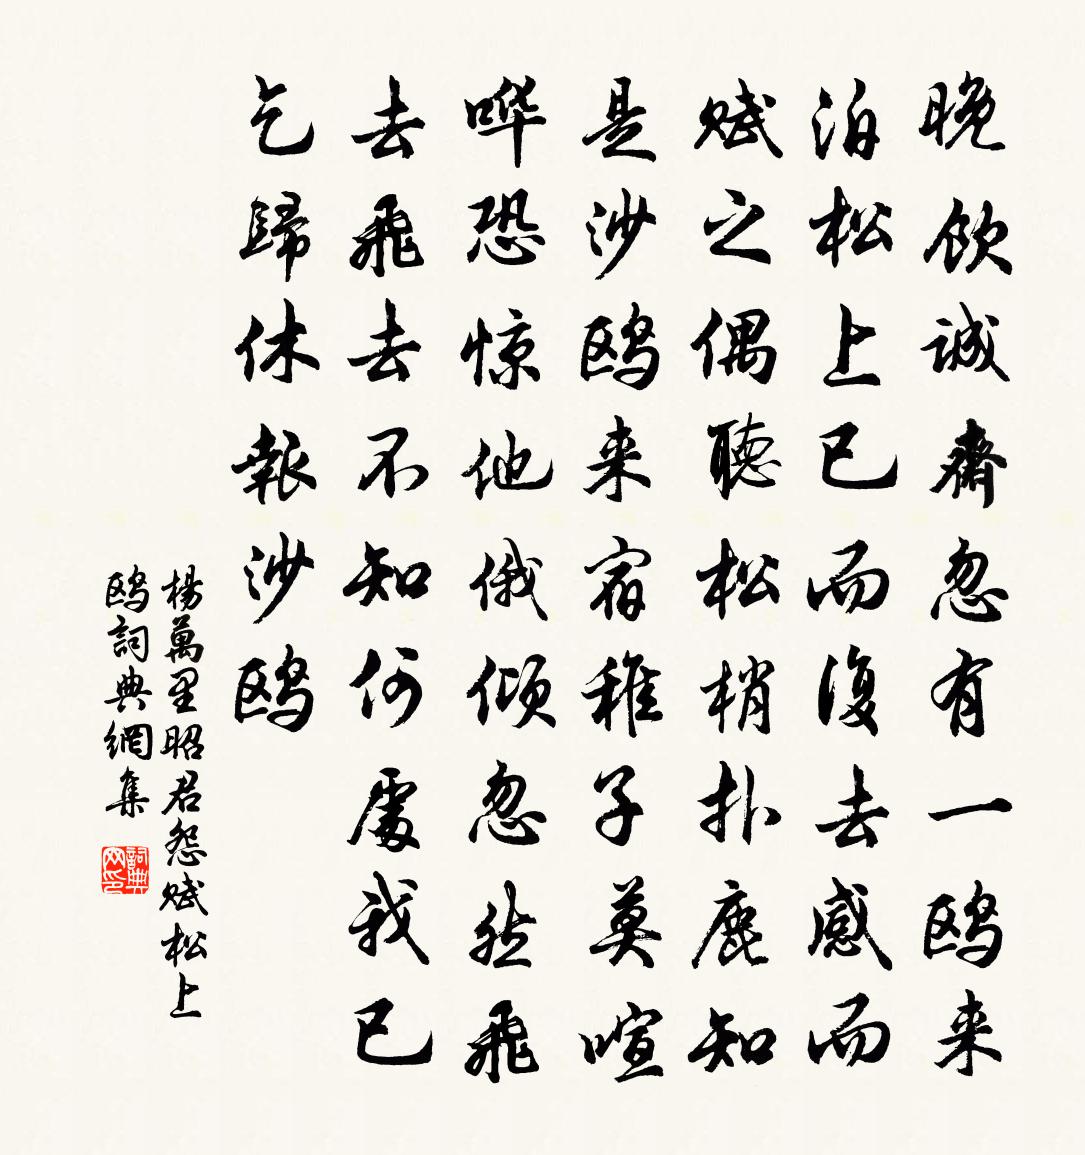 晚饮诚斋忽有一鸥来
泊松上已而復去感而
赋之偶聽松梢扑鹿知
是沙鸥来宿稚子莫喧
哗恐惊他俄倾忽然飛
去飛去不知何處我已
乞歸休報沙鸥
楊萬里昭君怨赋松上
鸥詞典網集
詞典网印